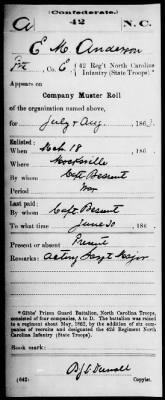 (Confederate.)
A 42 N.C.
C M Anderson
Pvt, Co. C, 42 Reg't North Carolina
Infantry (State Troops).*
Appears on
Company Muster Roll
of the organization named above,
for July & Aug, 186
Enlisted:
When Mch 18, 186
Where Mocksville
By whom Capt Bessent
Period War
Last paid:
By whom Capt Bessent
To what time June 30, 186
Present or absent Present
Remarks: Acting Sergt Major
*Gibbs' Prison Guard Battalion, North Carolina Troops,
consisted of four companies, A to D. The battalion was raised
to a regiment about May, 1862, by the addition of six com-
panies of recruits and designated the 42d Regiment North
Carolina Infantry (State Troops).
Book mark:
(642) Copyist.